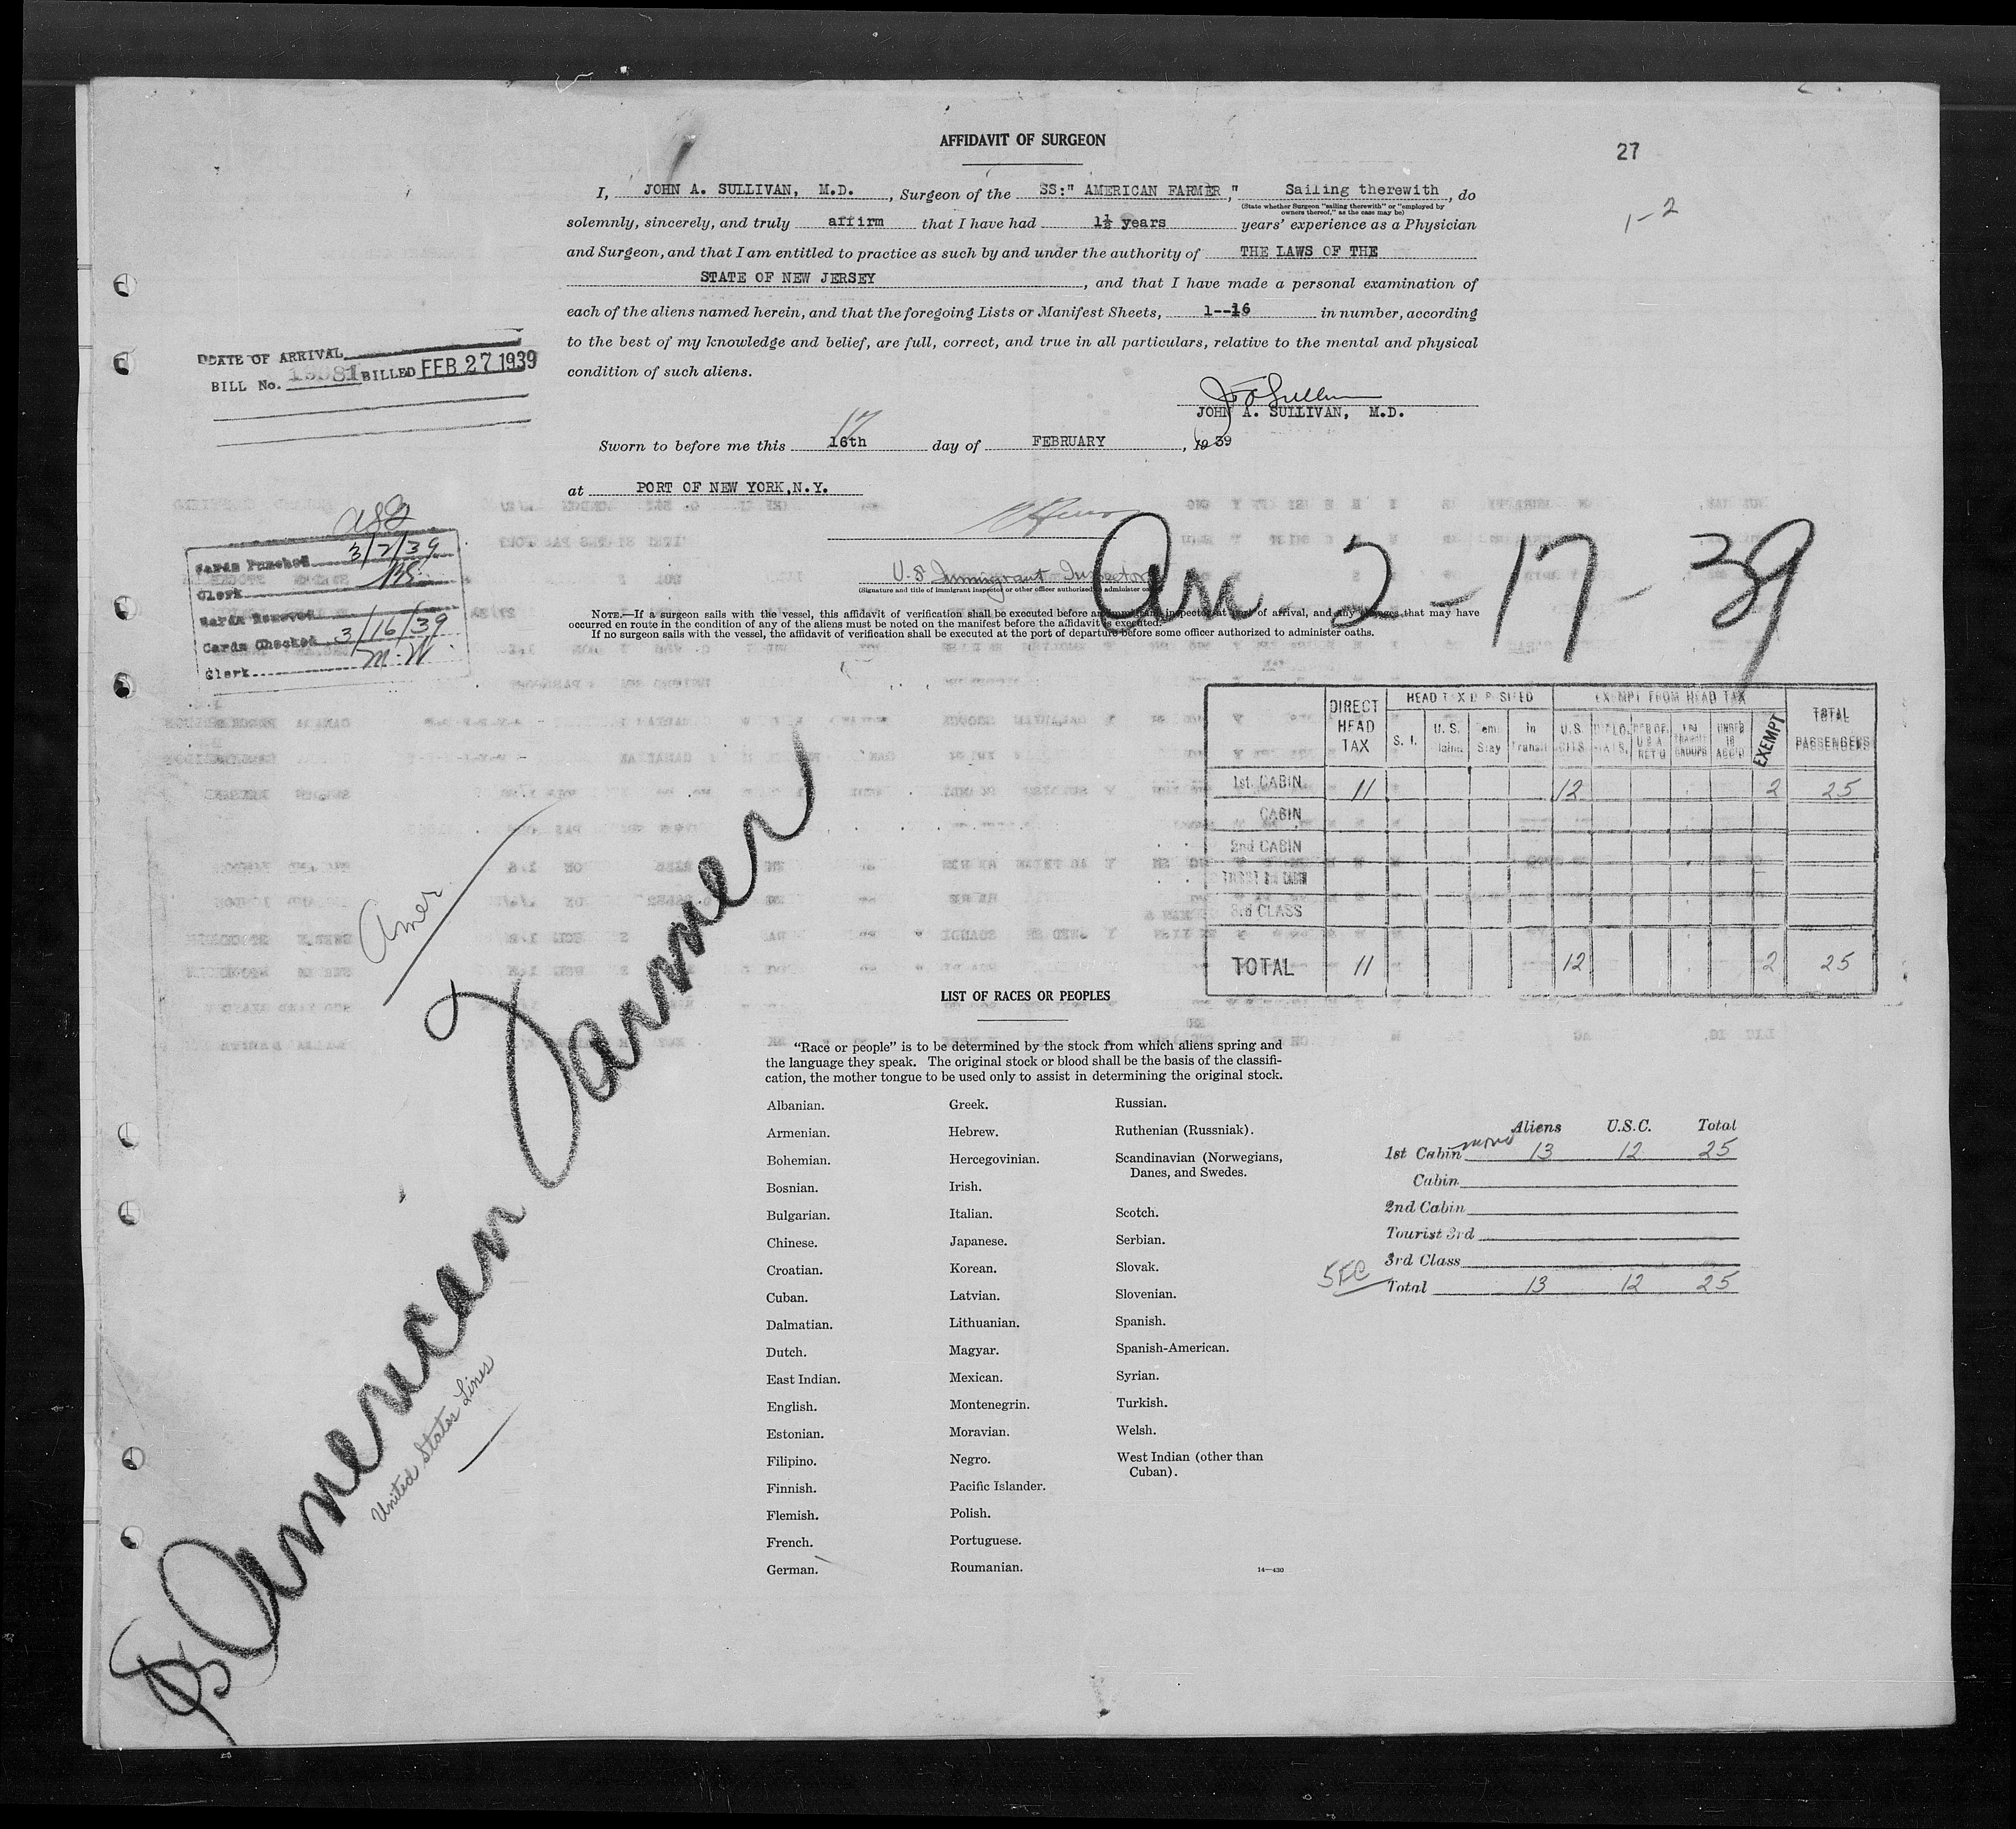 AFFIDAVIT OF SURGEON
27
1-2
I, JOHN A. SULLIVAN, M.D. , Surgeon of the SS:" AMERICAN FARMER ," Sailing therewith , do
(State whether Surgeon "sailing therewith" or "employed by
owners thereof," as the case may be)
solemnly, sincerely, and truly affirm that I have had 1½ years years' experience as a Physician
and Surgeon, and that I am entitled to practice as such by and under the authority of THE LAWS OF THE
STATE OF NEW JERSEY , and that I have made a personal examination of
each of the aliens named herein, and that the foregoing Lists or Manifest Sheets, 1--16 in number, according
to the best of my knowledge and belief, are full, correct, and true in all particulars, relative to the mental and physical
condition of such aliens.
DATE OF ARRIVAL
BILL No. BILLED FEB 27 1939
JOHN A. SULLIVAN, M.D.
17
Sworn to before me this 16th day of FEBRUARY , 1939
at PORT OF NEW YORK,N.Y.
U.S. Immigrant Inspector
(Signature and title of immigrant inspector or other officer authorized to administer oaths)
NOTE.—If a surgeon sails with the vessel, this affidavit of verification shall be executed before an immigrant inspector at port of arrival, and any changes that may have
occurred en route in the condition of any of the aliens must be noted on the manifest before the affidavit is executed.
If no surgeon sails with the vessel, the affidavit of verification shall be executed at the port of departure before some officer authorized to administer oaths.
Arr. 2-17-39
Cards Punched 3/2/39
Clerk
Cards Removed
Cards Checked 3/16/39
Clerk M.W.
DIRECT HEAD TAX
HEAD TAX DEPOSITED
EXEMPT FROM HEAD TAX
TOTAL PASSENGERS
S. I. U. S. Claim Tem Stay In Transit U.S. CITS. DIPLO. RES OF U.S.A. RET'G UNDER 16 ACC'D EXEMPT
1st CABIN 11 12 2 25
CABIN
2nd CABIN
TOURIST 3rd CABIN
3rd CLASS
TOTAL 11 12 2 25
Amer
SS American Farmer
United States Lines
LIST OF RACES OR PEOPLES
"Race or people" is to be determined by the stock from which aliens spring and
the language they speak. The original stock or blood shall be the basis of the classifi-
cation, the mother tongue to be used only to assist in determining the original stock.
Albanian.
Armenian.
Bohemian.
Bosnian.
Bulgarian.
Chinese.
Croatian.
Cuban.
Dalmatian.
Dutch.
East Indian.
English.
Estonian.
Filipino.
Finnish.
Flemish.
French.
German.
Greek.
Hebrew.
Hercegovinian.
Irish.
Italian.
Japanese.
Korean.
Latvian.
Lithuanian.
Magyar.
Mexican.
Montenegrin.
Moravian.
Negro.
Pacific Islander.
Polish.
Portuguese.
Roumanian.
Russian.
Ruthenian (Russniak).
Scandinavian (Norwegians,
Danes, and Swedes.
Scotch.
Serbian.
Slovak.
Slovenian.
Spanish.
Spanish-American.
Syrian.
Turkish.
Welsh.
West Indian (other than
Cuban).
14—430
Aliens U.S.C. Total
1st Cabin 13 12 25
Cabin
2nd Cabin
Tourist 3rd
3rd Class
Total 13 12 25